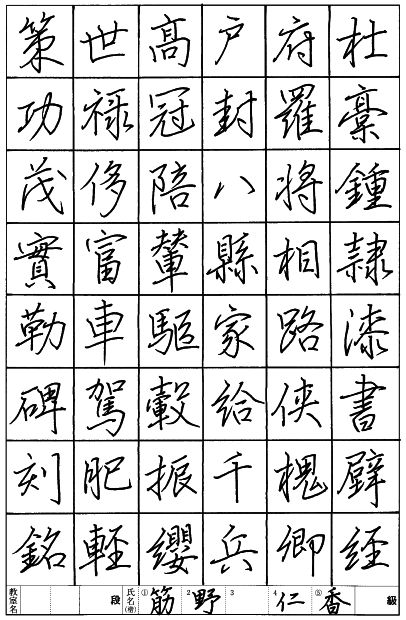 杜稾鍾隷漆書壁経
府羅将相路侠槐卿
戸封八縣家給千兵
高冠陪輦驅轂振纓
世禄侈富車駕肥軽
策功茂實勒碑刻銘
教室名 段 氏名(楷) ①筋 2野 3 4仁 ⑤香 級